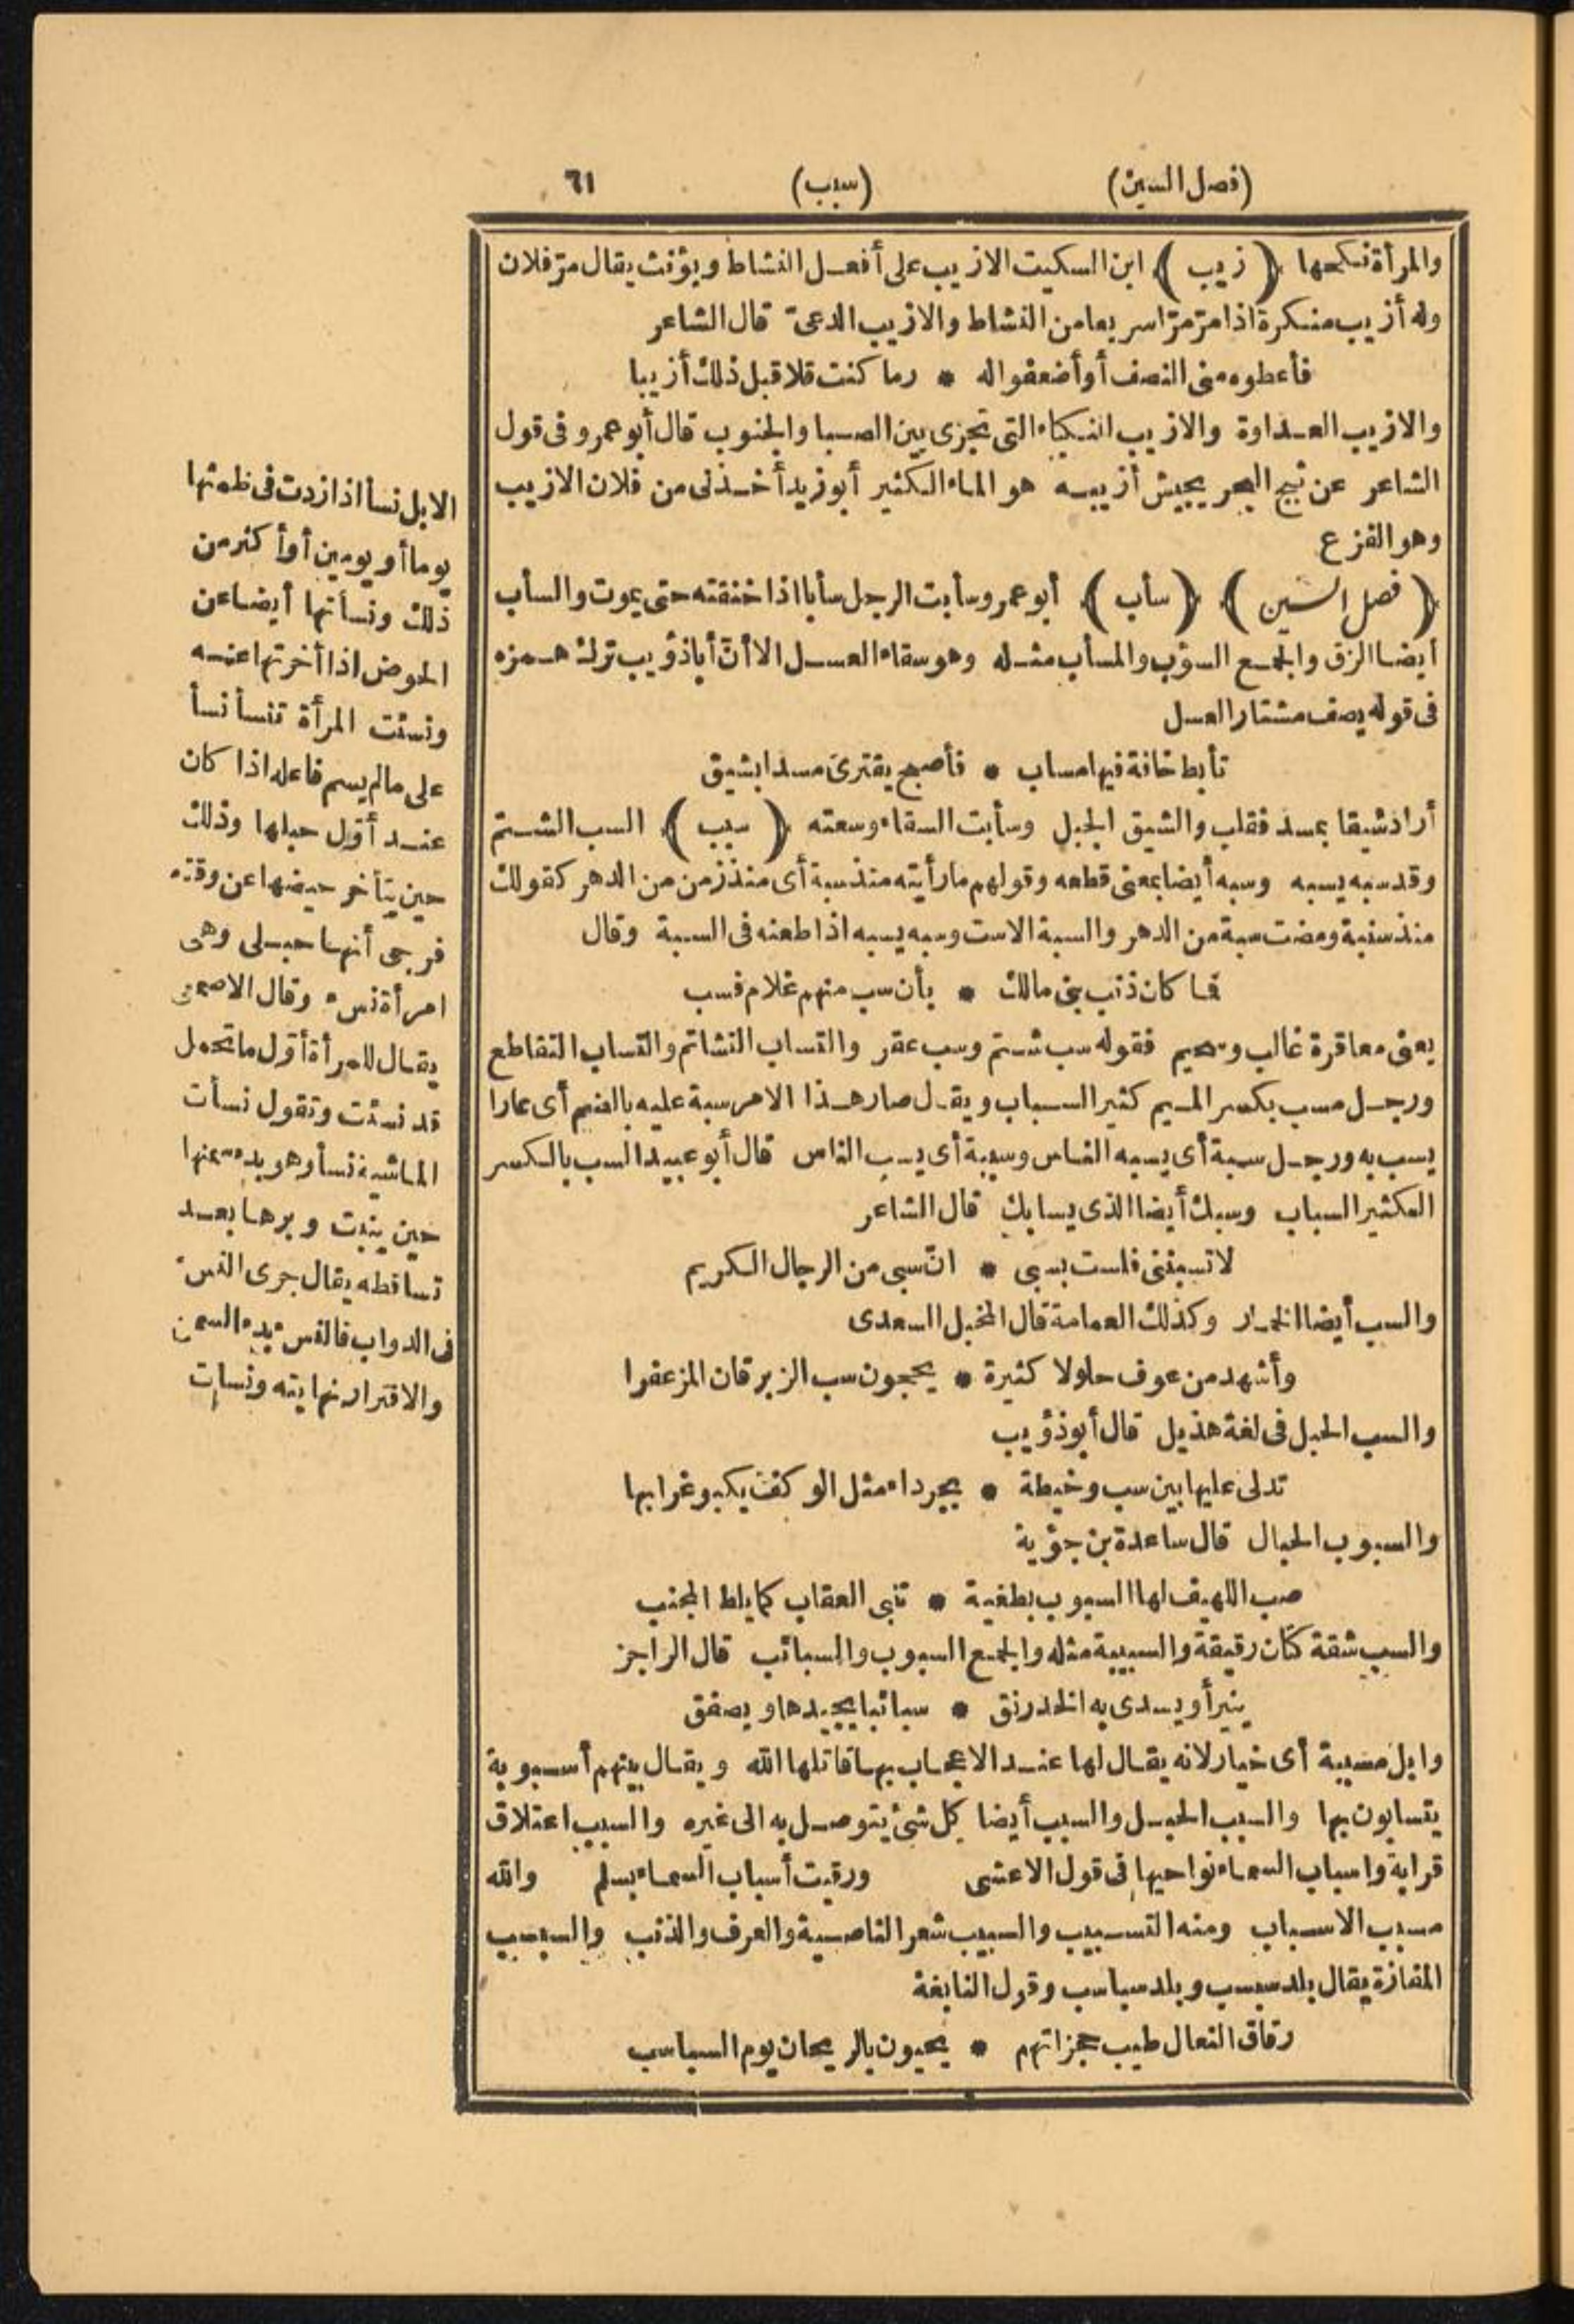 (فصل السين)
(سبب)
٦١
والمرأة نكحها ﴿ زيب ﴾ ابن السكيت الازيب على أفعل النشاط ويؤنث يقال مرّ فلان
وله أزيب منكرة اذا مرّ مرّا سريعا من النشاط والازيب الدعىّ قال الشاعر
فأعطوه منى النصف أو أضعفوا له * وما كنت قلا قبل ذلك أزيبا
والازيب العداوة والازيب النكباء التى تجرى بين الصبا والجنوب قال أبو عمرو فى قول
الشاعر عن ثبج البحر يجيش أزيبه هو الماء الكثير أبو زيد أخذنى من فلان الازيب
وهو الفزع
﴿ فصل السين ﴾ ﴿ سأب ﴾ أبو عمرو سأبت الرجل سأبا اذا خنقته حتى يموت والسأب
أيضا الزق والجمع السؤب والمسأب مثله وهو سقاء العسل الا أنّ أبا ذؤيب ترك همزه
فى قوله يصف مشتار العسل
تأبط خافة فيها مساب * فأصبح يقترى مسدا بشيق
أراد شيقا بمسد فقلب والشيق الجبل وسأبت السقاء وسعته ﴿ سبب ﴾ السب الشتم
وقد سبه يسبه وسبه أيضا بمعنى قطعه وقولهم ما رأيته منذ سبة أى منذ زمن من الدهر كقولك
منذ سنبة ومضت سبة من الدهر والسبة الاست وسبه يسبه اذا طعنه فى السبة وقال
فما كان ذنب بنى مالك * بأن سب منهم غلام فسب
يعنى معاقرة غالب وسحيم فقوله سب شتم وسب عقر والتساب التشاتم والتساب التقاطع
ورجل مسب بكسر الميم كثير السباب ويقال صار هذا الامر سبة عليه بالضم أى عارا
يسب به ورجل سبة أى يسبه الناس وسببة أى يسب الناس قال أبو عبيد السب بالكسر
الكثير السباب وسبك أيضا الذى يسابك قال الشاعر
لا تسبننى فلست بسبى * انّ سبى من الرجال الكريم
والسب أيضا الخمار وكذلك العمامة قال المخبل السعدى
وأشهد من عوف حلولا كثيرة * يحجون سب الزبرقان المزعفرا
والسب الحبل فى لغة هذيل قال أبو ذؤيب
تدلى عليها بين سب وخيطة * بجرداء مثل الوكف يكبو غرابها
والسبوب الحبال قال ساعدة بن جؤية
صب اللهيف لها السبوب بطغية * تنبى العقاب كما يلط المجنب
والسب شقة كتان رقيقة والسبيبة مثله والجمع السبوب والسبائب قال الراجز
ينير أو يسدى به الخدرنق * سبائبا يجيدها ويصفق
وابل مسببة أى خيار لانه يقال لها عند الاعجاب بها قاتلها الله ويقال بينهم أسبوبة
يتسابون بها والسبب الحبل والسبب أيضا كل شئ يتوصل به الى غيره والسبب اعتلاق
قرابة واسباب السماء نواحيها فى قول الاعشى ورقيت أسباب السماء بسلم والله
مسبب الاسباب ومنه التسبيب والسبيب شعر الناصية والعرف والذنب والسبسب
المفازة يقال بلد سبسب وبلد سباسب وقول النابغة
رقاق النعال طيب حجزاتهم * يحيون بالريحان يوم السباسب
الابل نسأ اذا زدت فى ظمئها
يوما أو يومين أو أكثر من
ذلك ونسأتها أيضا عن
الحوض اذا أخرتها عنه
ونسئت المرأة تنسأ نسأ
على ما لم يسم فاعله اذا كان
عند أوّل حبلها وذلك
حين يتأخر حيضها عن وقته
فرجى أنها حبلى وهى
امرأة نسء وقال الاصمعى
يقال للمرأة أوّل ما تحمل
قد نسئت وتقول نسأت
الماشية نسأ وهو بدء سمنها
حين ينبت وبرها بعد
تساقطه يقال جرى النسء
فى الدواب فالنسء بدء السمن
والاقترار نهايته ونسأت